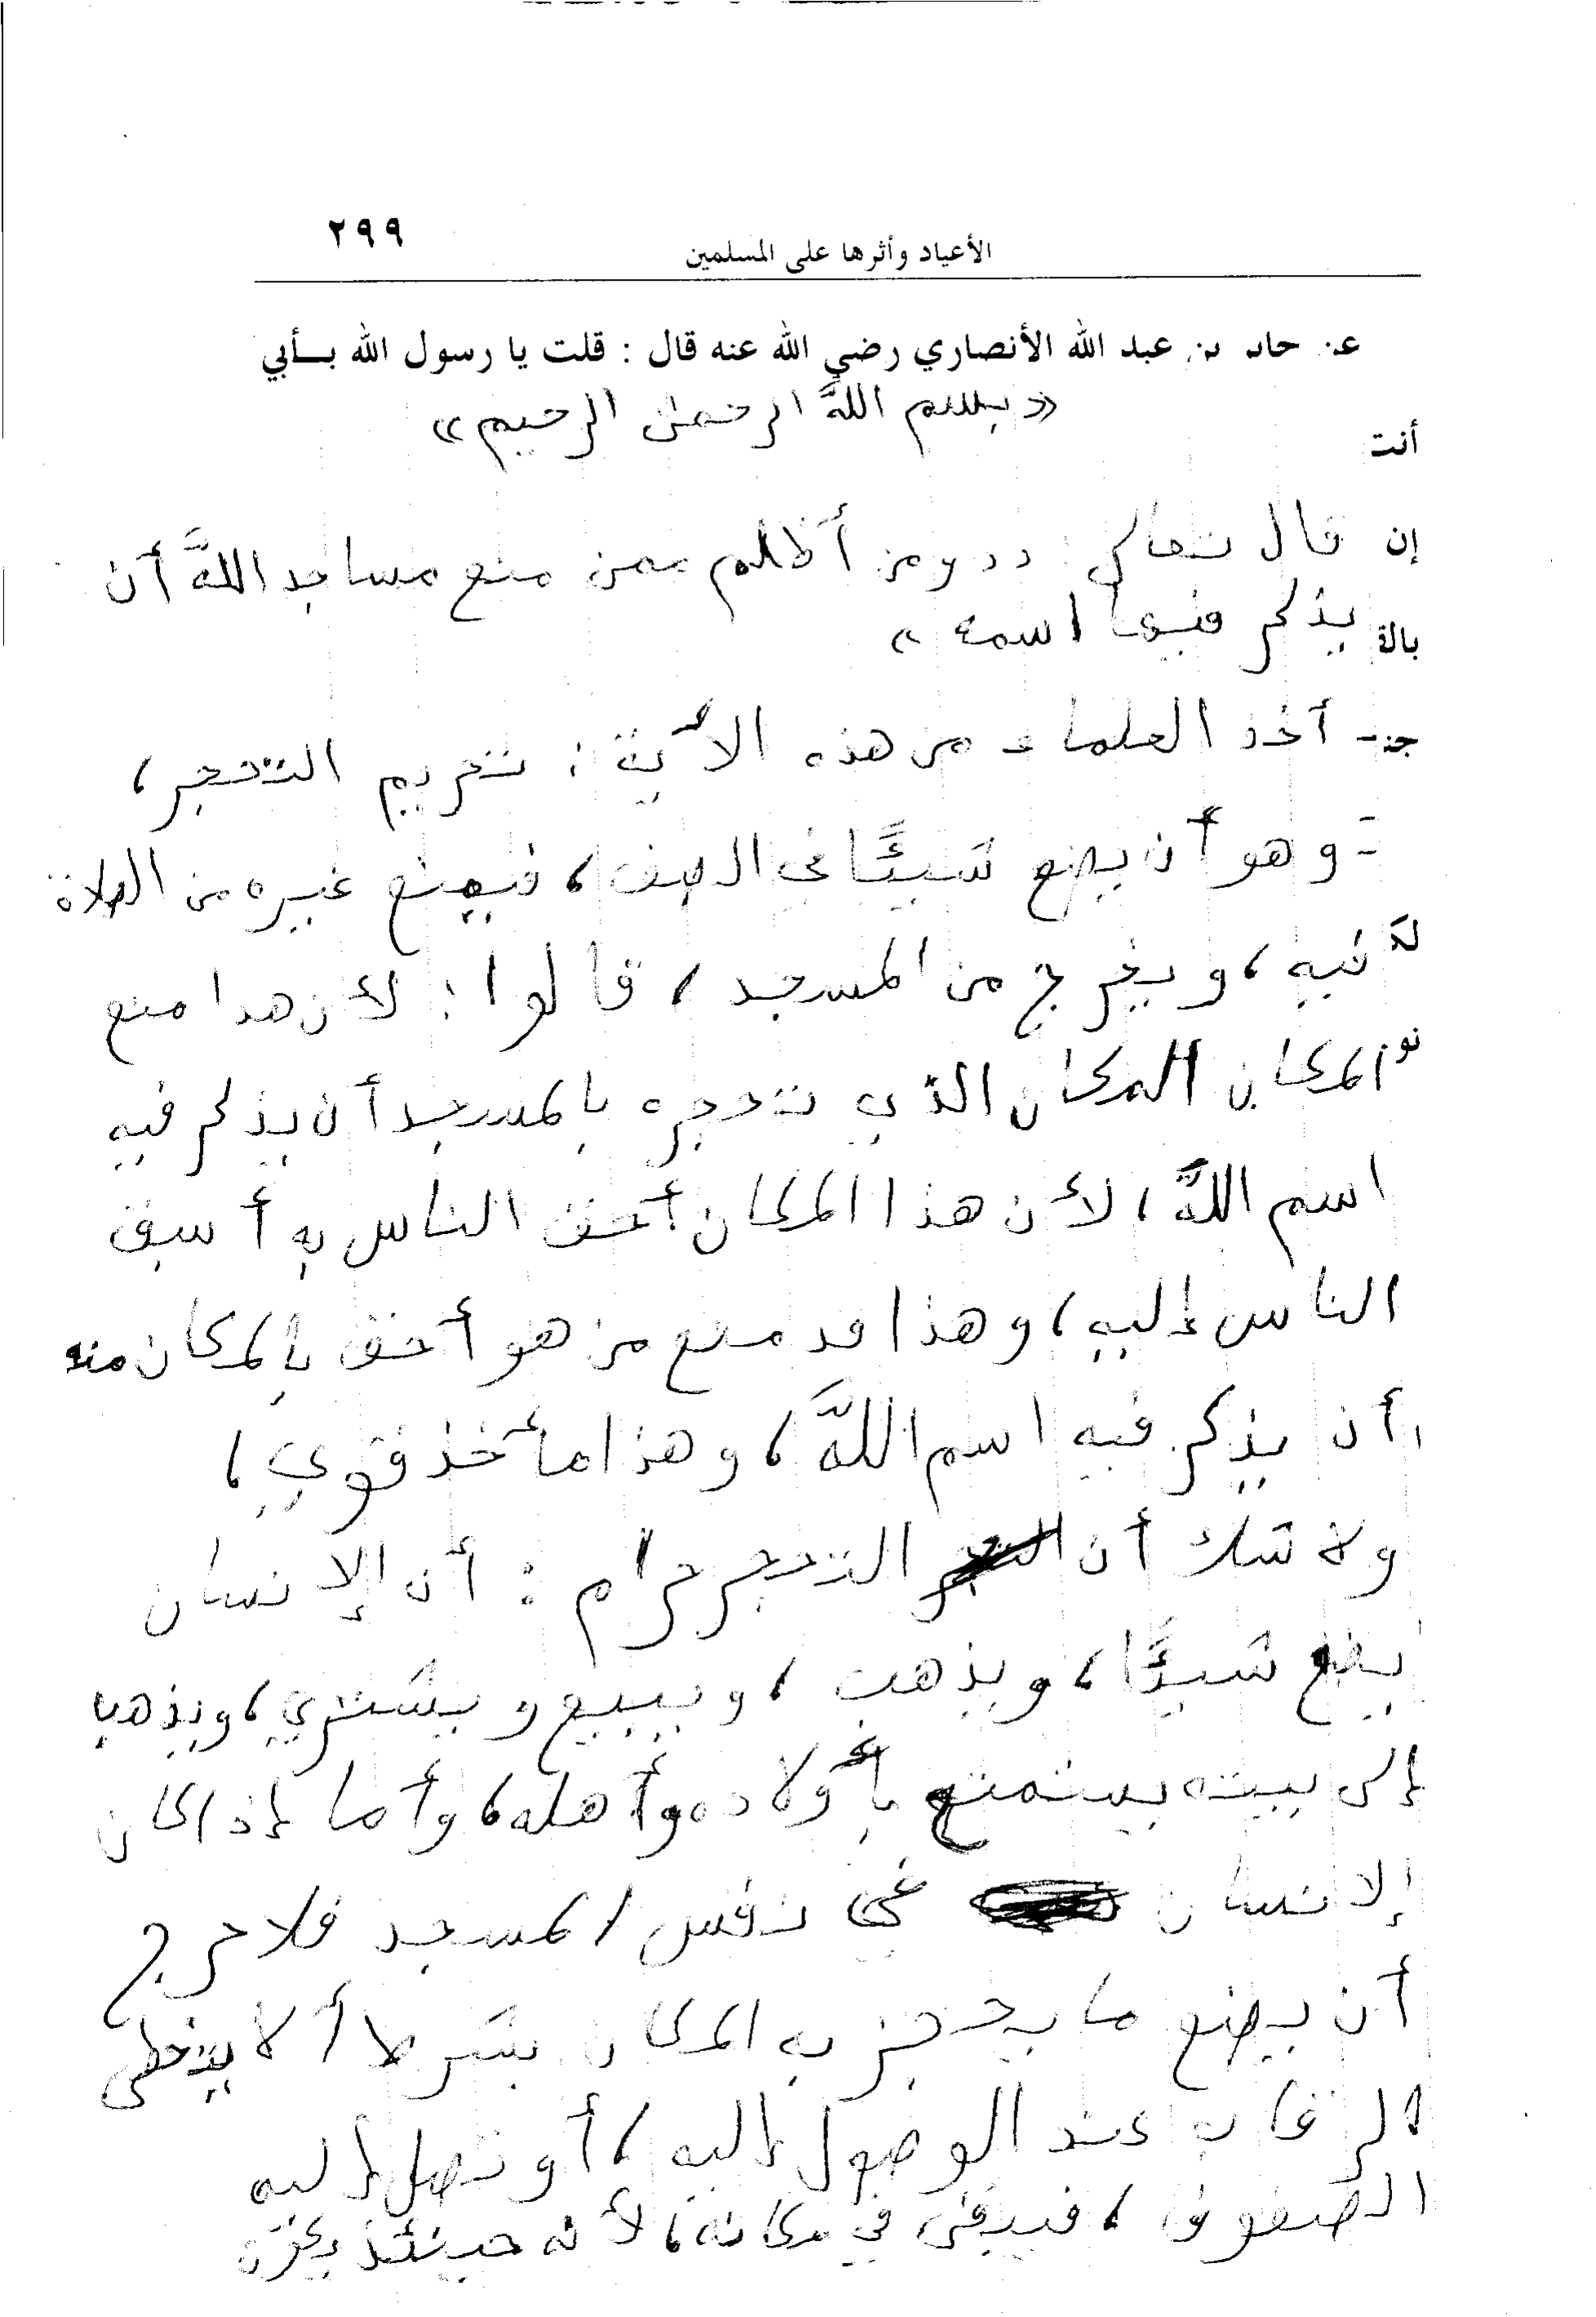 ٢٩٩
الأعياد وأثرها على المسلمين
عن جابر بن عبد الله الأنصاري رضي الله عنه قال : قلت يا رسول الله بـأبي
«بسم اللَّه الرحمن الرحيم»
أنت
إن قال تعالى : «ومن أظلم ممن منع مساجد اللَّه أن
بالة يذكر فيها اسمه»
جز- أخذ العلماء من هذه الآية : تحريم التحجر،
وهو أن يضع شيئًا في الصف، فيمنع غيره من الصلاة
فيه، ويخرج من المسجد، قالوا : لأن هذا منع
نو المكان المكان الذي تحجره بالمسجد أن يذكر فيه
اسم اللَّه، لأن هذا المكان أحق الناس به أسبق
الناس إليه، وهذا قد منع من هو أحق بالمكان منه
أن يذكر فيه اسم اللَّه، وهذا مأخذ قوي،
ولا شك أن التحجر حرام : أن الإنسان
يضع شيئًا، ويذهب، ويبيع ويشتري، ويذهب
إلى بيته يستمتع بأولاده وأهله، وأما إذا كان
الإنسان في نفس المسجد فلا حرج
أن يضع ما يحجز به المكان بشرط ألا يتخطى
الرقاب عند الوصول إليه، أو تصل إليه
الصفوف، فيبقى في مكانه، لأنه حينئذ